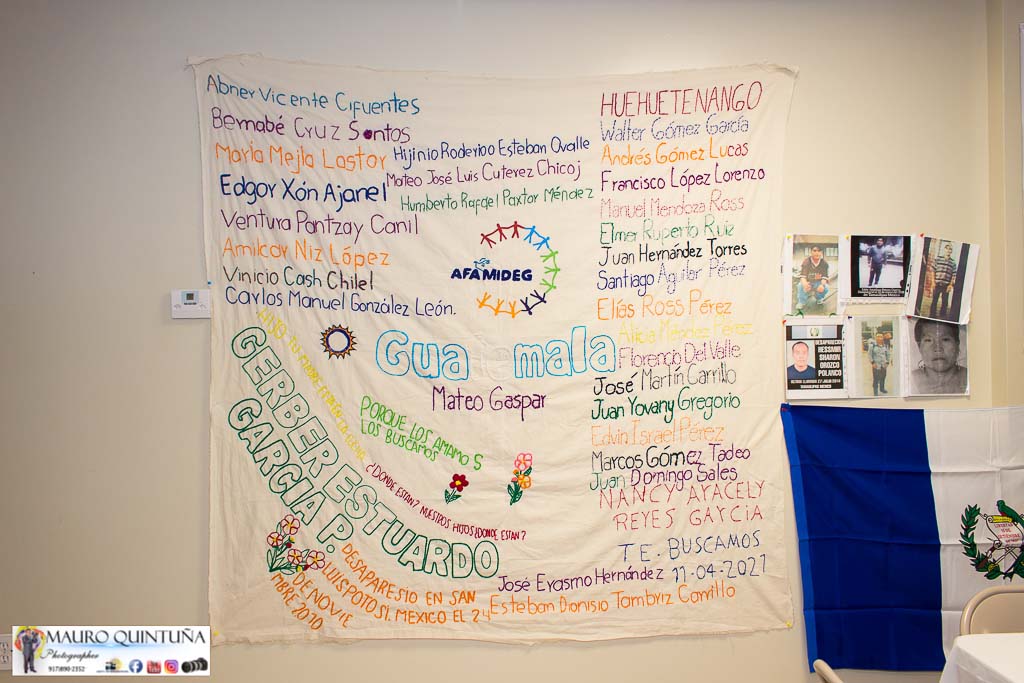 Abner Vicente Cifuentes
Bernabé Cruz Santos
Maria Mejía Lastor
Edgar Xón Ajanel
Ventura Pantzay Canil
Amilcar Niz López
Vinicio Cash Chilel
Carlos Manuel González León.
Hijinio Roderigo Esteban Ovalle
Mateo José Luis Cuterez Chicoj
Humberto Rafael Paxtor Méndez
AFAMIDEG
Guatemala
Mateo Gaspar
PORQUE LOS AMAMOS
LOS BUSCAMOS
GERBER ESTUARDO
GARCIA P.
¿DONDE ESTAN? NUESTROS HIJOS ¿DONDE ESTAN?
DESAPARESIO EN SAN
LUIS POTOSI. MEXICO EL 24
DE NOVIE
MBRE 2010
HUEHUETENANGO
Walter Gómez García
Andrés Gómez Lucas
Francisco López Lorenzo
Manuel Mendoza Ross
Elmer Ruperto Ruiz
Juan Hernández Torres
Santiago Aguilar Pérez
Elías Ross Pérez
Alicia Méndez Pérez
Florencio Del Valle
José Martín Carrillo
Juan Yovany Gregorio
Edvin Israel Pérez
Marcos Gómez Tadeo
Juan Domingo Sales
NANCY ARACELY
REYES GARCIA
TE. BUSCAMOS
José Erasmo Hernández 11-04-2021
Esteban Dionisio Tambriz Carrillo
DESAPARECIDO
HESSMIR
SHARON
OROZCO
POLANCO
ULTIMA LLAMADA 27 JULIO 2014
TAMAULIPAS MEXICO
LIBERTAD
MAURO QUINTUÑA
Photographer
917)890-2352